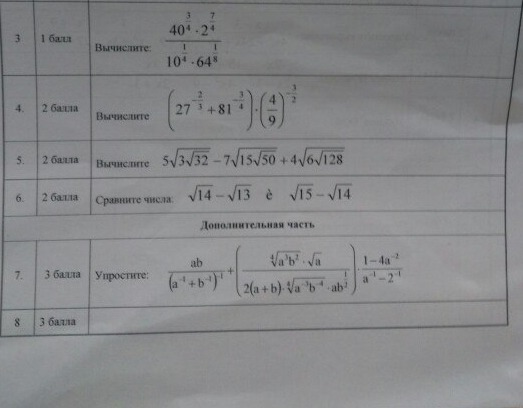 3 1 балл Вычислите: (40^(3/4) · 2^(7/4)) / (10^(1/4) · 64^(1/8))
4. 2 балла Вычислите (27^(-2/3) + 81^(-3/4)) · (4/9)^(-3/2)
5. 2 балла Вычислите 5√(3√32) − 7√(15√50) + 4√(6√128)
6. 2 балла Сравните числа: √14 − √13 è √15 − √14
Дополнительная часть
7. 3 балла Упростите: ab / (a⁻¹ + b⁻¹)⁻¹ + ( (∜(a³b²) · √a) / (2(a + b) · ∜(a⁻³b⁻⁴) · ab^(1/2)) ) · (1 − 4a⁻²) / (a⁻¹ − 2⁻¹)
8 3 балла